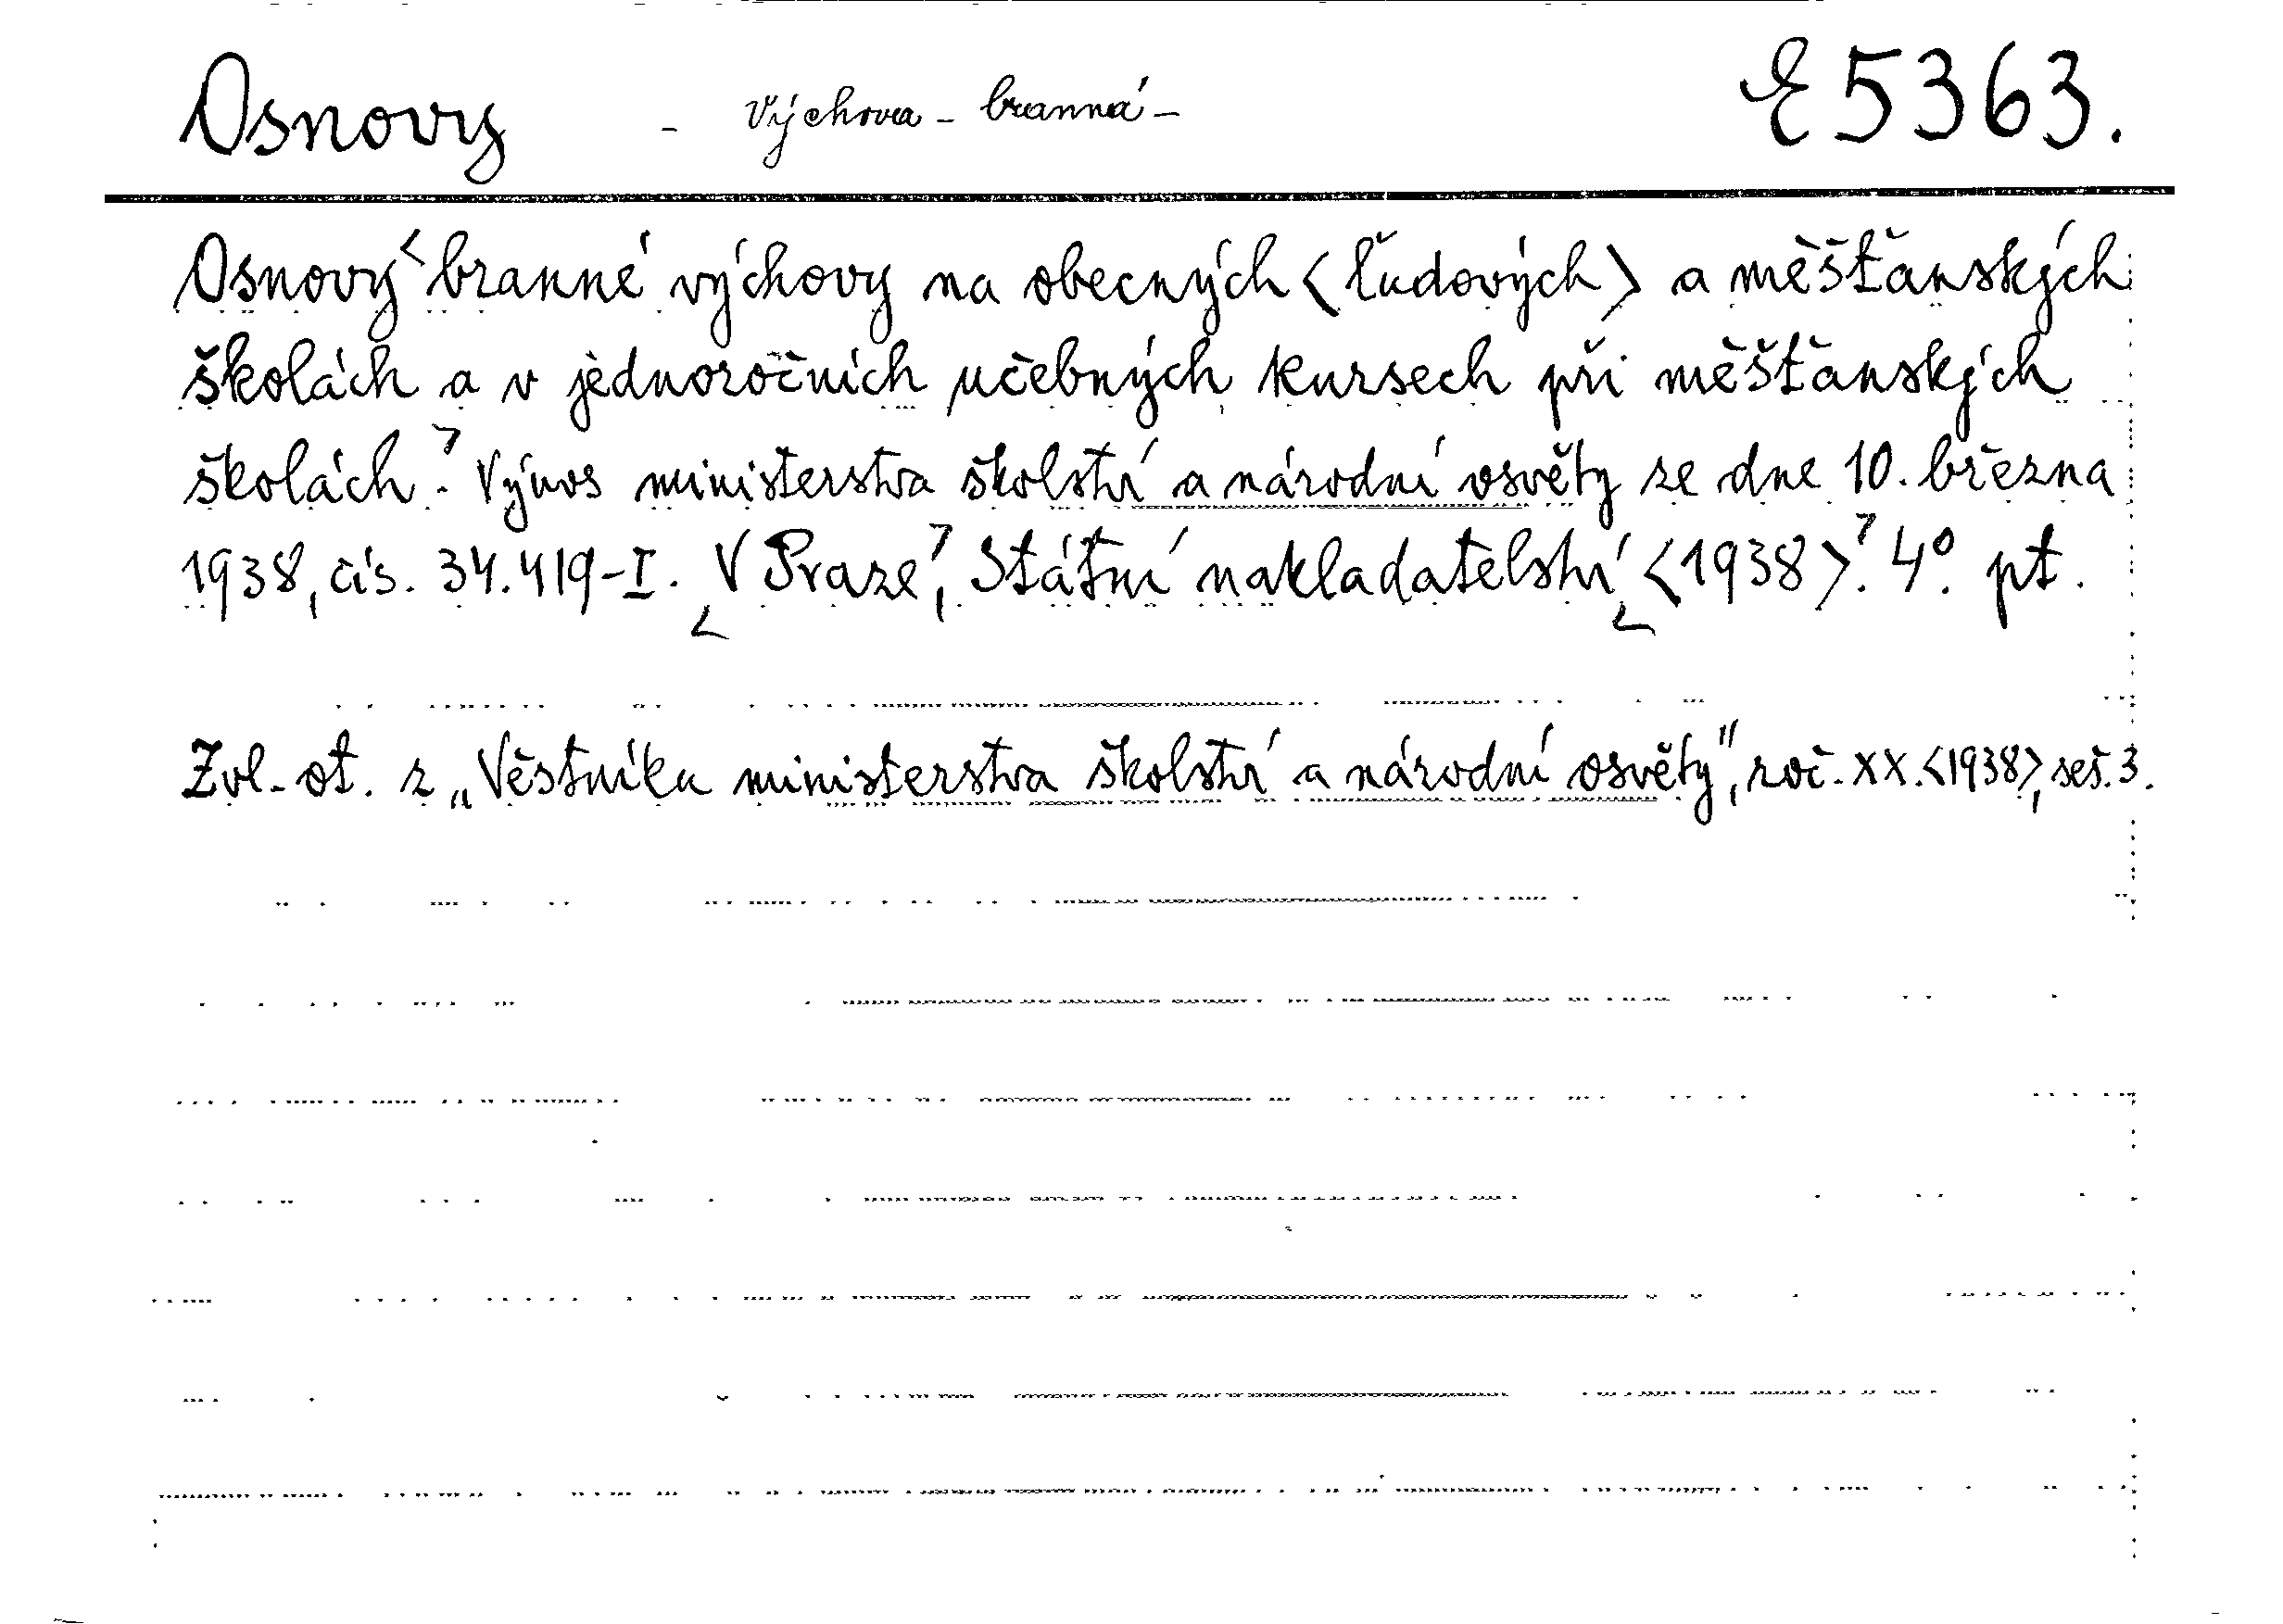 Osnovy - Výchova - branná - E 5363.
Osnovy <branné výchovy na obecných <ľudových> a měšťanských
školách a v jednoročních učebných kursech při měšťanských
školách>. Výnos ministerstva školství a národní osvěty ze dne 10. března
1938, čís. 34.419-I. <V Praze>, Státní nakladatelství <<1938>>. 4°. pt.
Zvl. ot. z „Věstníku ministerstva školství a národní osvěty", roč. XX. <1938>, seš. 3.